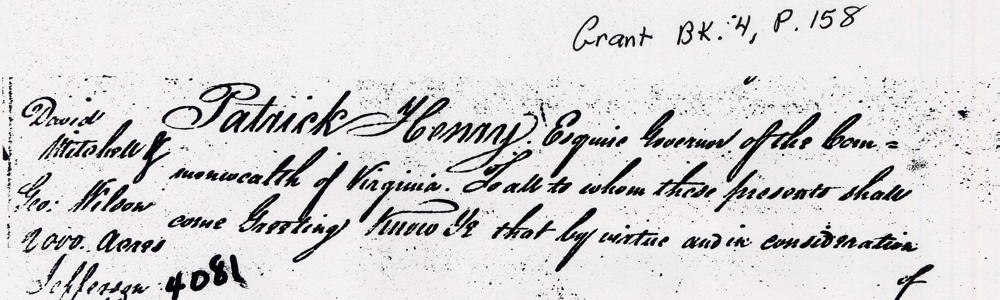 Grant BK. 4, P. 158
David
Mitchell &
Geo: Wilson
2000. Acres
Jefferson 4081
Patrick Henry, Esquire Governor of the Com=
monwealth of Virginia. To all to whom these presents shall
come Greeting Know Ye that by virtue and in consideration
of